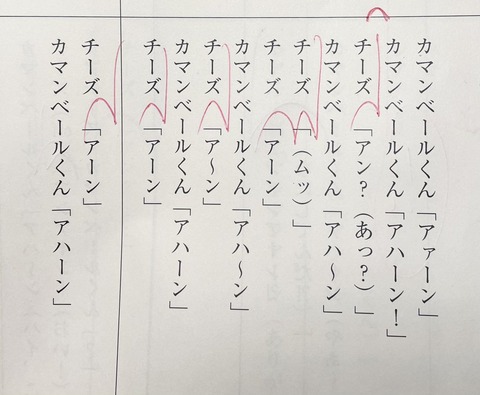 カマンベールくん「アァーン」
カマンベールくん「アハーン！」
チーズ「アン？（あっ？）」
カマンベールくん「アハ〜ン」
チーズ「（ムッ）」
チーズ「アーン」
カマンベールくん「アハ〜ン」
チーズ「ア〜ン」
カマンベールくん「アハーン」
チーズ「アーン」
チーズ「アーン」
カマンベールくん「アハーン」